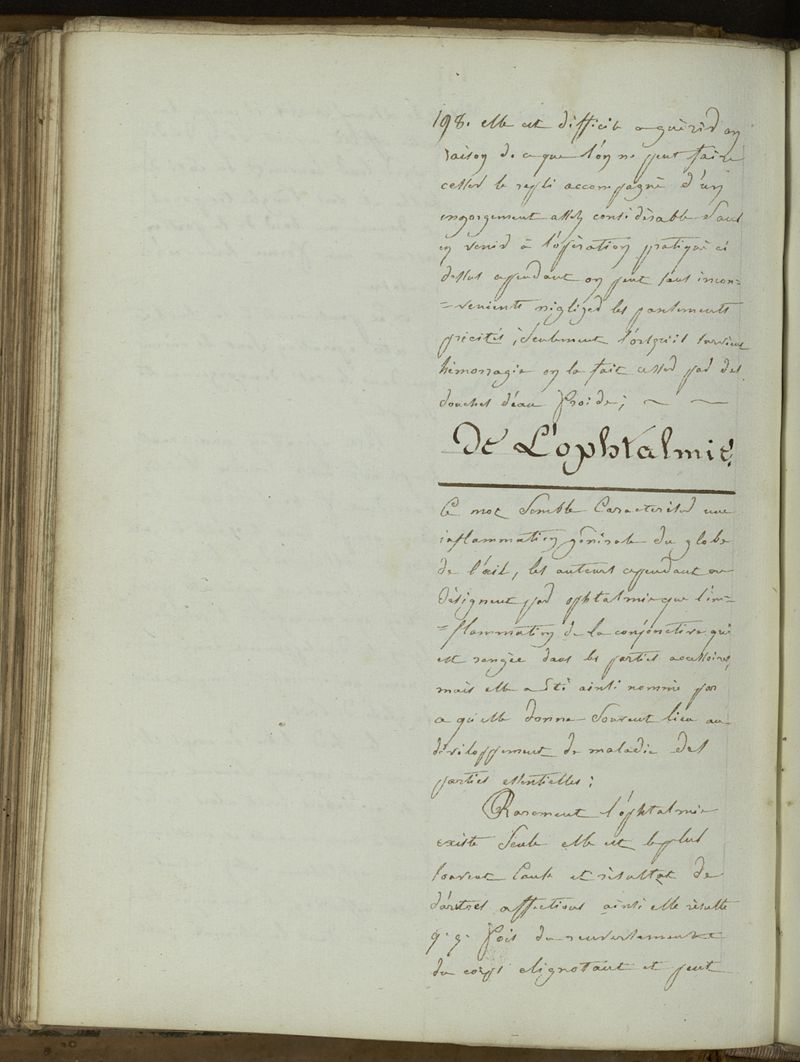 198. elle est difficile a guèrir en
raison de ce que l'on ne peut faire
cesser le repli accompagné d'un
engorgement assez considèrable faut
en venir à l'opèration pratiqué ci
dessus cependant on peut sans incon=
=venients nègliger les pansements
prècités; seulement lorsqu'il survient
hèmorragie on la fait cesser par des
douches d'éau froide; ~ ~
De L'ophtalmie.
Ce mot semble Caracteriser une
inflammation gènèrale du globe
de l'œil, les auteurs cependant ne
dèsignent par ophtalmie que l'in=
=flammation de la conjonctive qui
est rangèe dans les parties accessoires,
mais elle a étè ainsi nommèe par
ce qu'elle donne souvent lieu au
dèveloppement de maladie des
parties essentielles;
Rarement l'ophtalmie
existe seule elle est le plus
souvent cause et rèsultat de
d'autres affections ainsi elle rèsulte
q. q. fois du renversement
du corps clignotant et peut